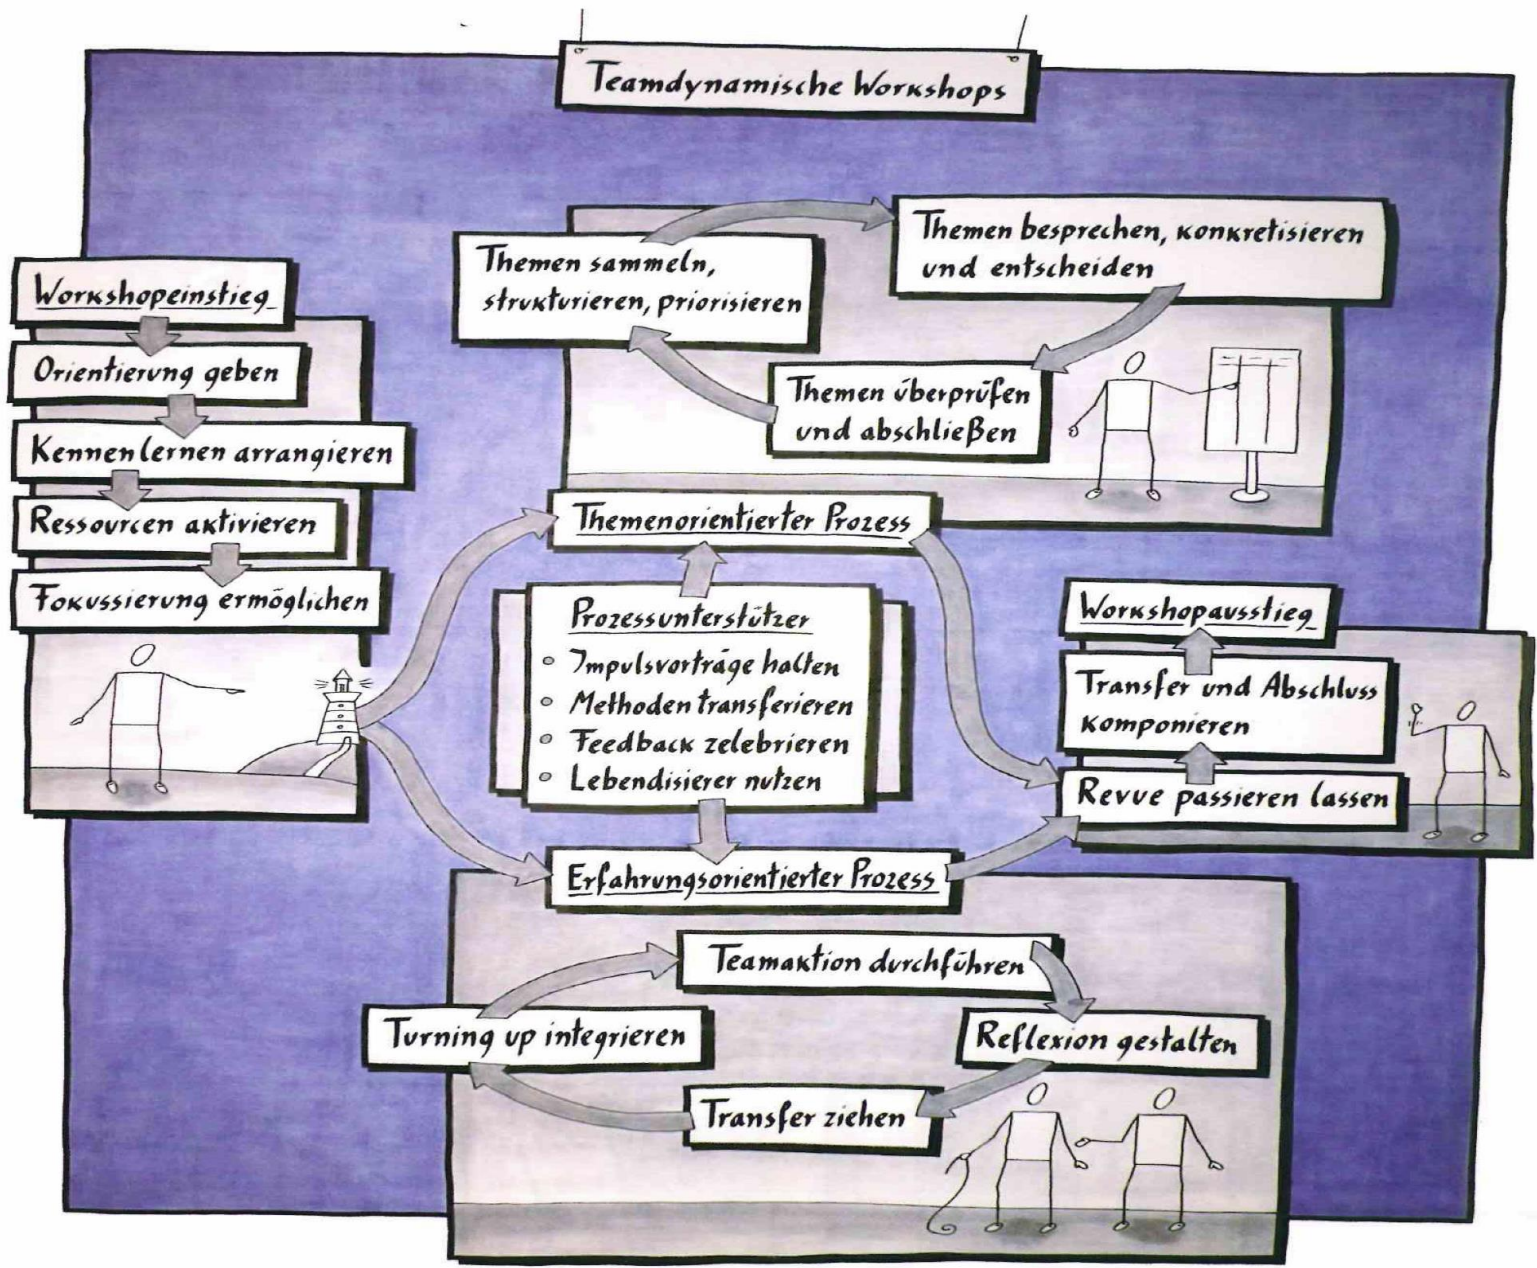 Teamdynamische Workshops
Workshopeinstieg
Orientierung geben
Kennenlernen arrangieren
Ressourcen aktivieren
Fokussierung ermöglichen
Themen sammeln,
strukturieren, priorisieren
Themen besprechen, konkretisieren
und entscheiden
Themen überprüfen
und abschließen
Themenorientierter Prozess
Prozessunterstützer
• Impulsvorträge halten
• Methoden transferieren
• Feedback zelebrieren
• Lebendisierer nutzen
Erfahrungsorientierter Prozess
Teamaktion durchführen
Reflexion gestalten
Transfer ziehen
Turning up integrieren
Workshopausstieg
Transfer und Abschluss
komponieren
Revue passieren lassen